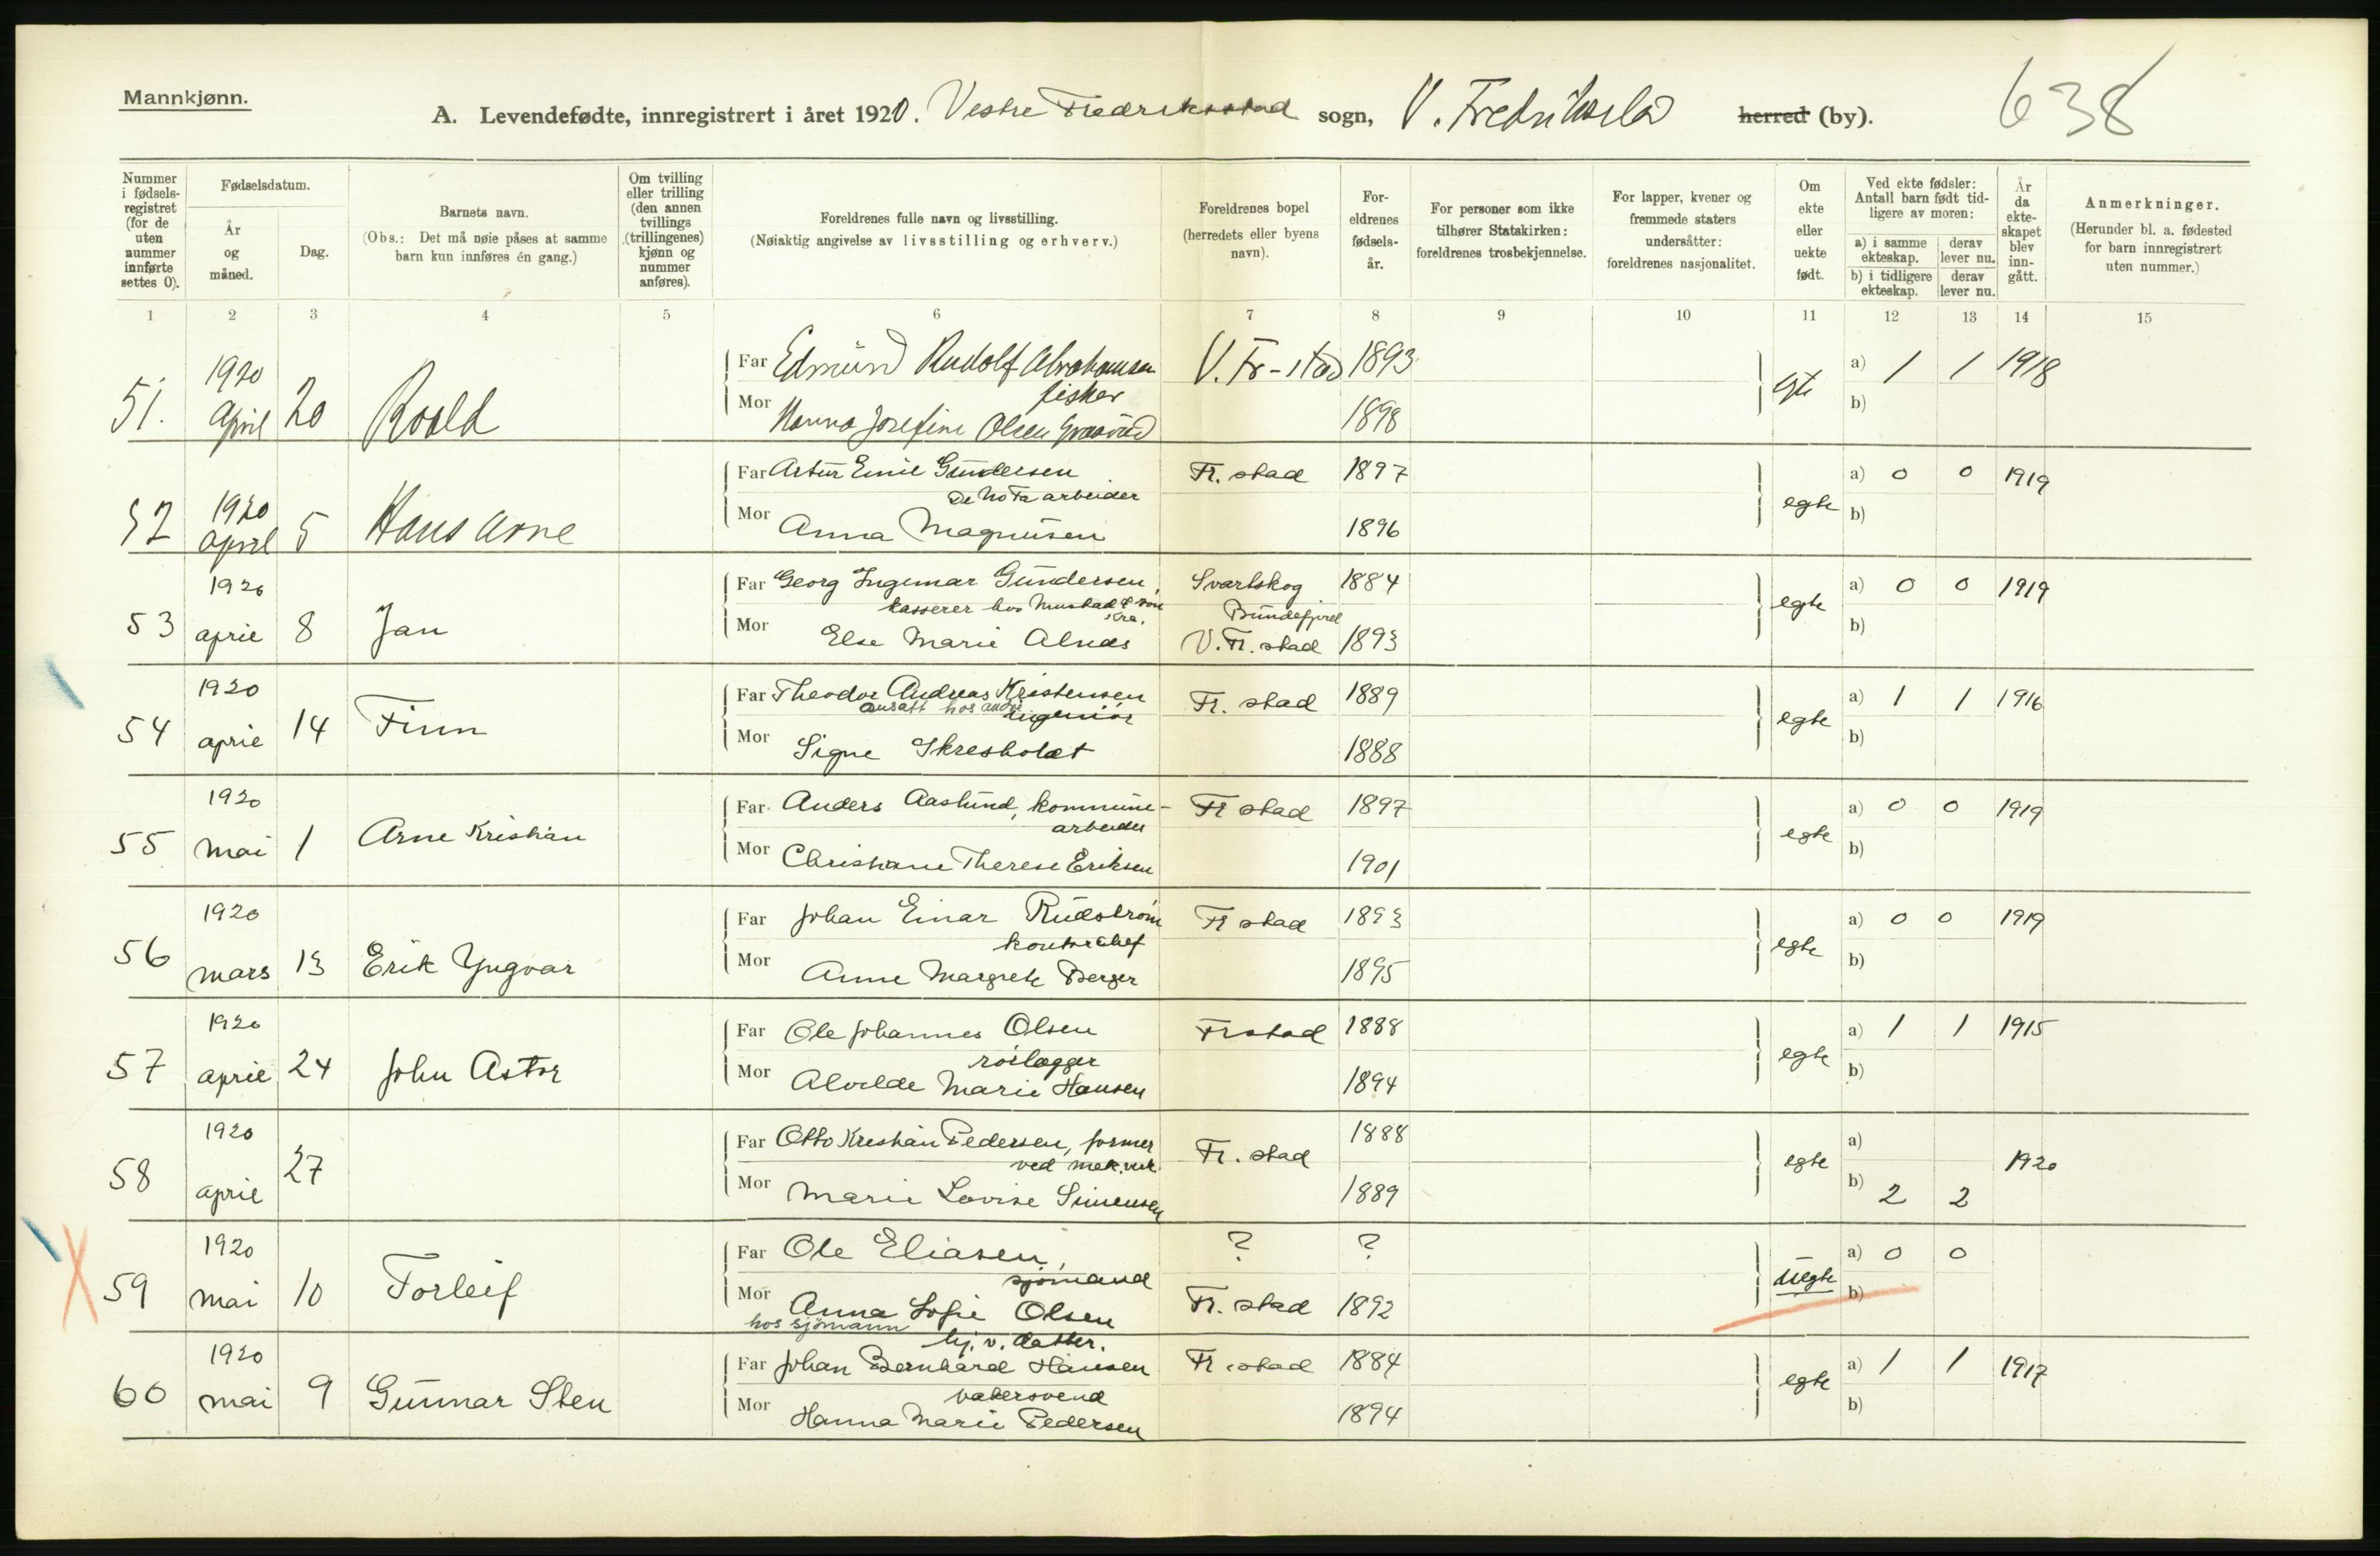 Mannkjønn.
A. Levendefødte, innregistrert i året 1920. Vestre Fredriksstad sogn, V. Fredriksstad herred (by). 638
Nummer i fødselsregistret (for de uten nummer innførte settes 0).
Fødselsdatum.
År og måned.
Dag.
Barnets navn.
(Obs.: Det må nøie påses at samme barn kun innføres én gang.)
Om tvilling eller trilling (den annen tvillings (trillingenes) kjønn og nummer anføres).
Foreldrenes fulle navn og livsstilling.
(Nøiaktig angivelse av livsstilling og erhverv.)
Foreldrenes bopel (herredets eller byens navn).
Foreldrenes fødselsår.
For personer som ikke tilhører Statskirken: foreldrenes trosbekjennelse.
For lapper, kvener og fremmede staters undersåtter: foreldrenes nasjonalitet.
Om ekte eller uekte født.
Ved ekte fødsler: Antall barn født tidligere av moren:
a) i samme ekteskap. derav lever nu.
b) i tidligere ekteskap. derav lever nu.
År da ekteskapet blev inngått.
Anmerkninger.
(Herunder bl. a. fødested for barn innregistrert uten nummer.)
1 2 3 4 5 6 7 8 9 10 11 12 13 14 15
51. 1920 April 20 Roald
Far Edmund Rudolf Abrahamsen V. Fr-stad 1893 a) 1 1 1918
fisker
Mor Hanna Josefine Olsen 1898 b)
52 1920 April 5 Hans Arne
Far Artur Emil Gundersen Fr. stad 1897 egte a) 0 0 1919
De No Fa arbeider
Mor Anna Magnusen 1896 b)
53 1920 april 8 Jan
Far Georg Ingemar Gundersen, Svartskog 1884 egte a) 0 0 1919
kasserer hos Mustad & søn Kra. Bundefjord
Mor Else Marie Alnæs V. Fr. stad 1893 b)
54 1920 april 14 Finn
Far Theodor Andreas Kristensen Fr. stad 1889 egte a) 1 1 1916
ansatt hos andre ingeniør
Mor Signe 1888 b)
55 1920 mai 1 Arne Kristian
Far Anders Aaslund, kommune- Fr stad 1897 egte a) 0 0 1919
arbeider
Mor Christiane Therese Eriksen 1901 b)
56 1920 mars 13 Erik Yngvar
Far Johan Einar Rudstrøm Fr stad 1893 egte a) 0 0 1919
kontorchef
Mor Anne Margrete Berger 1895 b)
57 1920 april 24 John Astor
Far Ole Johannes Olsen Frstad 1888 egte a) 1 1 1915
rørlægger
Mor Alvilde Marie Hansen 1894 b)
58 1920 april 27
Far Otto Kristian Pedersen, former Fr. stad 1888 egte a) 1920
ved mek. verk.
Mor Marie Lovise Simensen 1889 b) 2 2
59 1920 mai 10 Torleif
Far Ole Eliasen, ? ? uegte a) 0 0
sjømand
Mor Anna Sofie Olsen Fr. stad 1892 b)
hos sjømann hj. v. datter.
60 1920 mai 9 Gunnar Sten
Far Johan Bernhard Hansen Fr. stad 1884 egte a) 1 1 1917
bakersvend
Mor Hanna Marie Pedersen 1894 b)